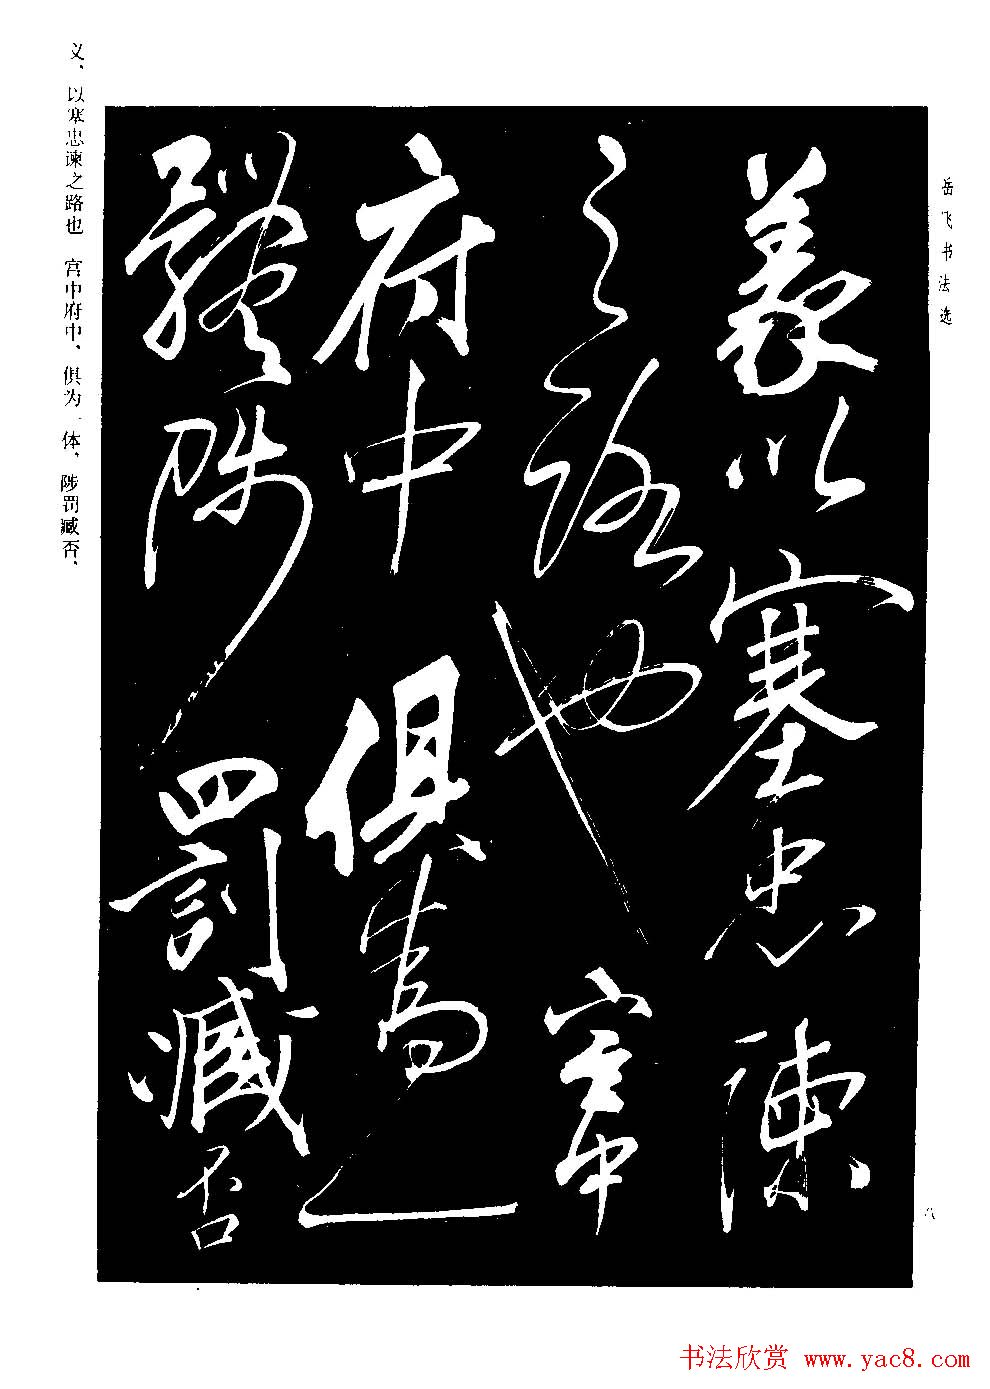 岳飞书法选
義以塞忠諫
之路也宮中
府中俱為一
體陟罰臧否
义、以塞忠谏之路也 宫中府中、俱为一体、陟罚臧否、
八
书法欣赏 www.yac8.com